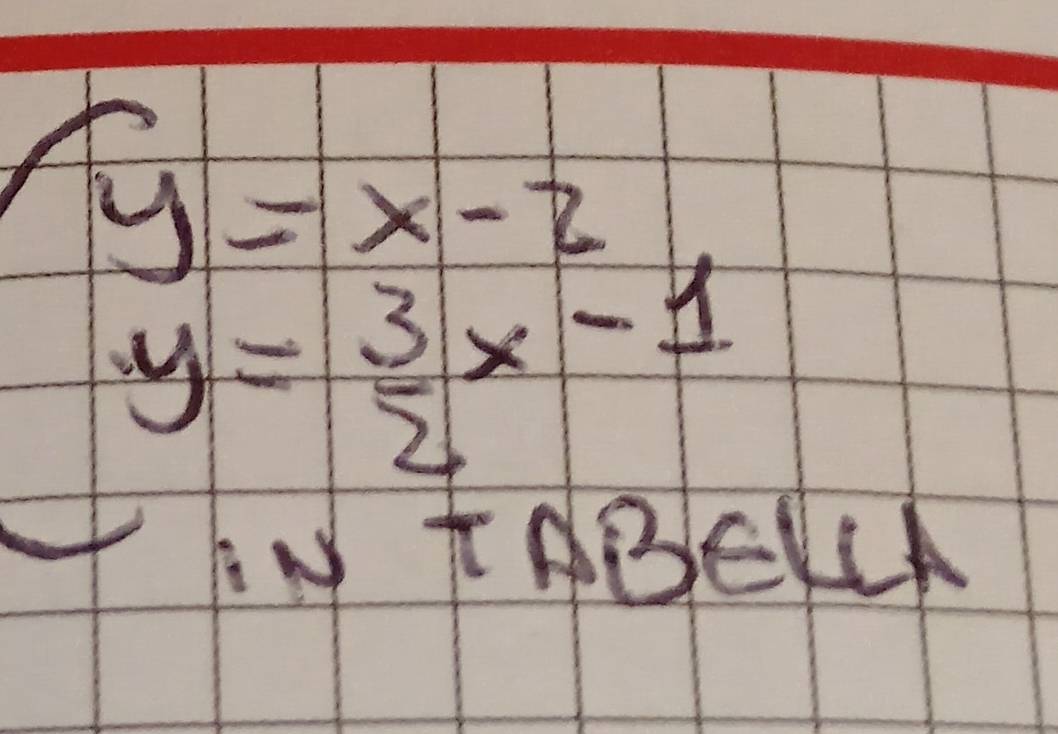 y = x - 2
y = 3/2 x - 1
iN TABELLA